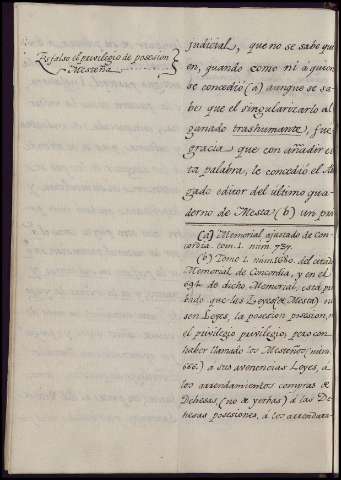 Es falso el privilegio de posesion
Mesteña
judicial, que no se sabe qui
en, quando como ni a quien
se concedió (a) aunque se sa-
be que el singularizarlo al
ganado trashumante, fue
gracia que con añadir es
ta palabra, le concedió el A
gado editor del ultimo qua
derno de Mesta (b) un pri
(a) Memorial ajustado de Con-
cordia. tom. 1. num.
(b) Tomo 1. num. del citado
Memorial de Concordia, y en el
de dicho Memorial, está pro
bado que las Leyes (de Mesta) no
sen Leyes, la posesion posesion, ni
el privilegio privilegio, pero con
haber llamado los Mesteños (num.
666.) a sus avenencias Leyes, a
los arrendamientos compras de
Dehesas (no de yerbas) á las De
hesas posesiones, á los arrendara-